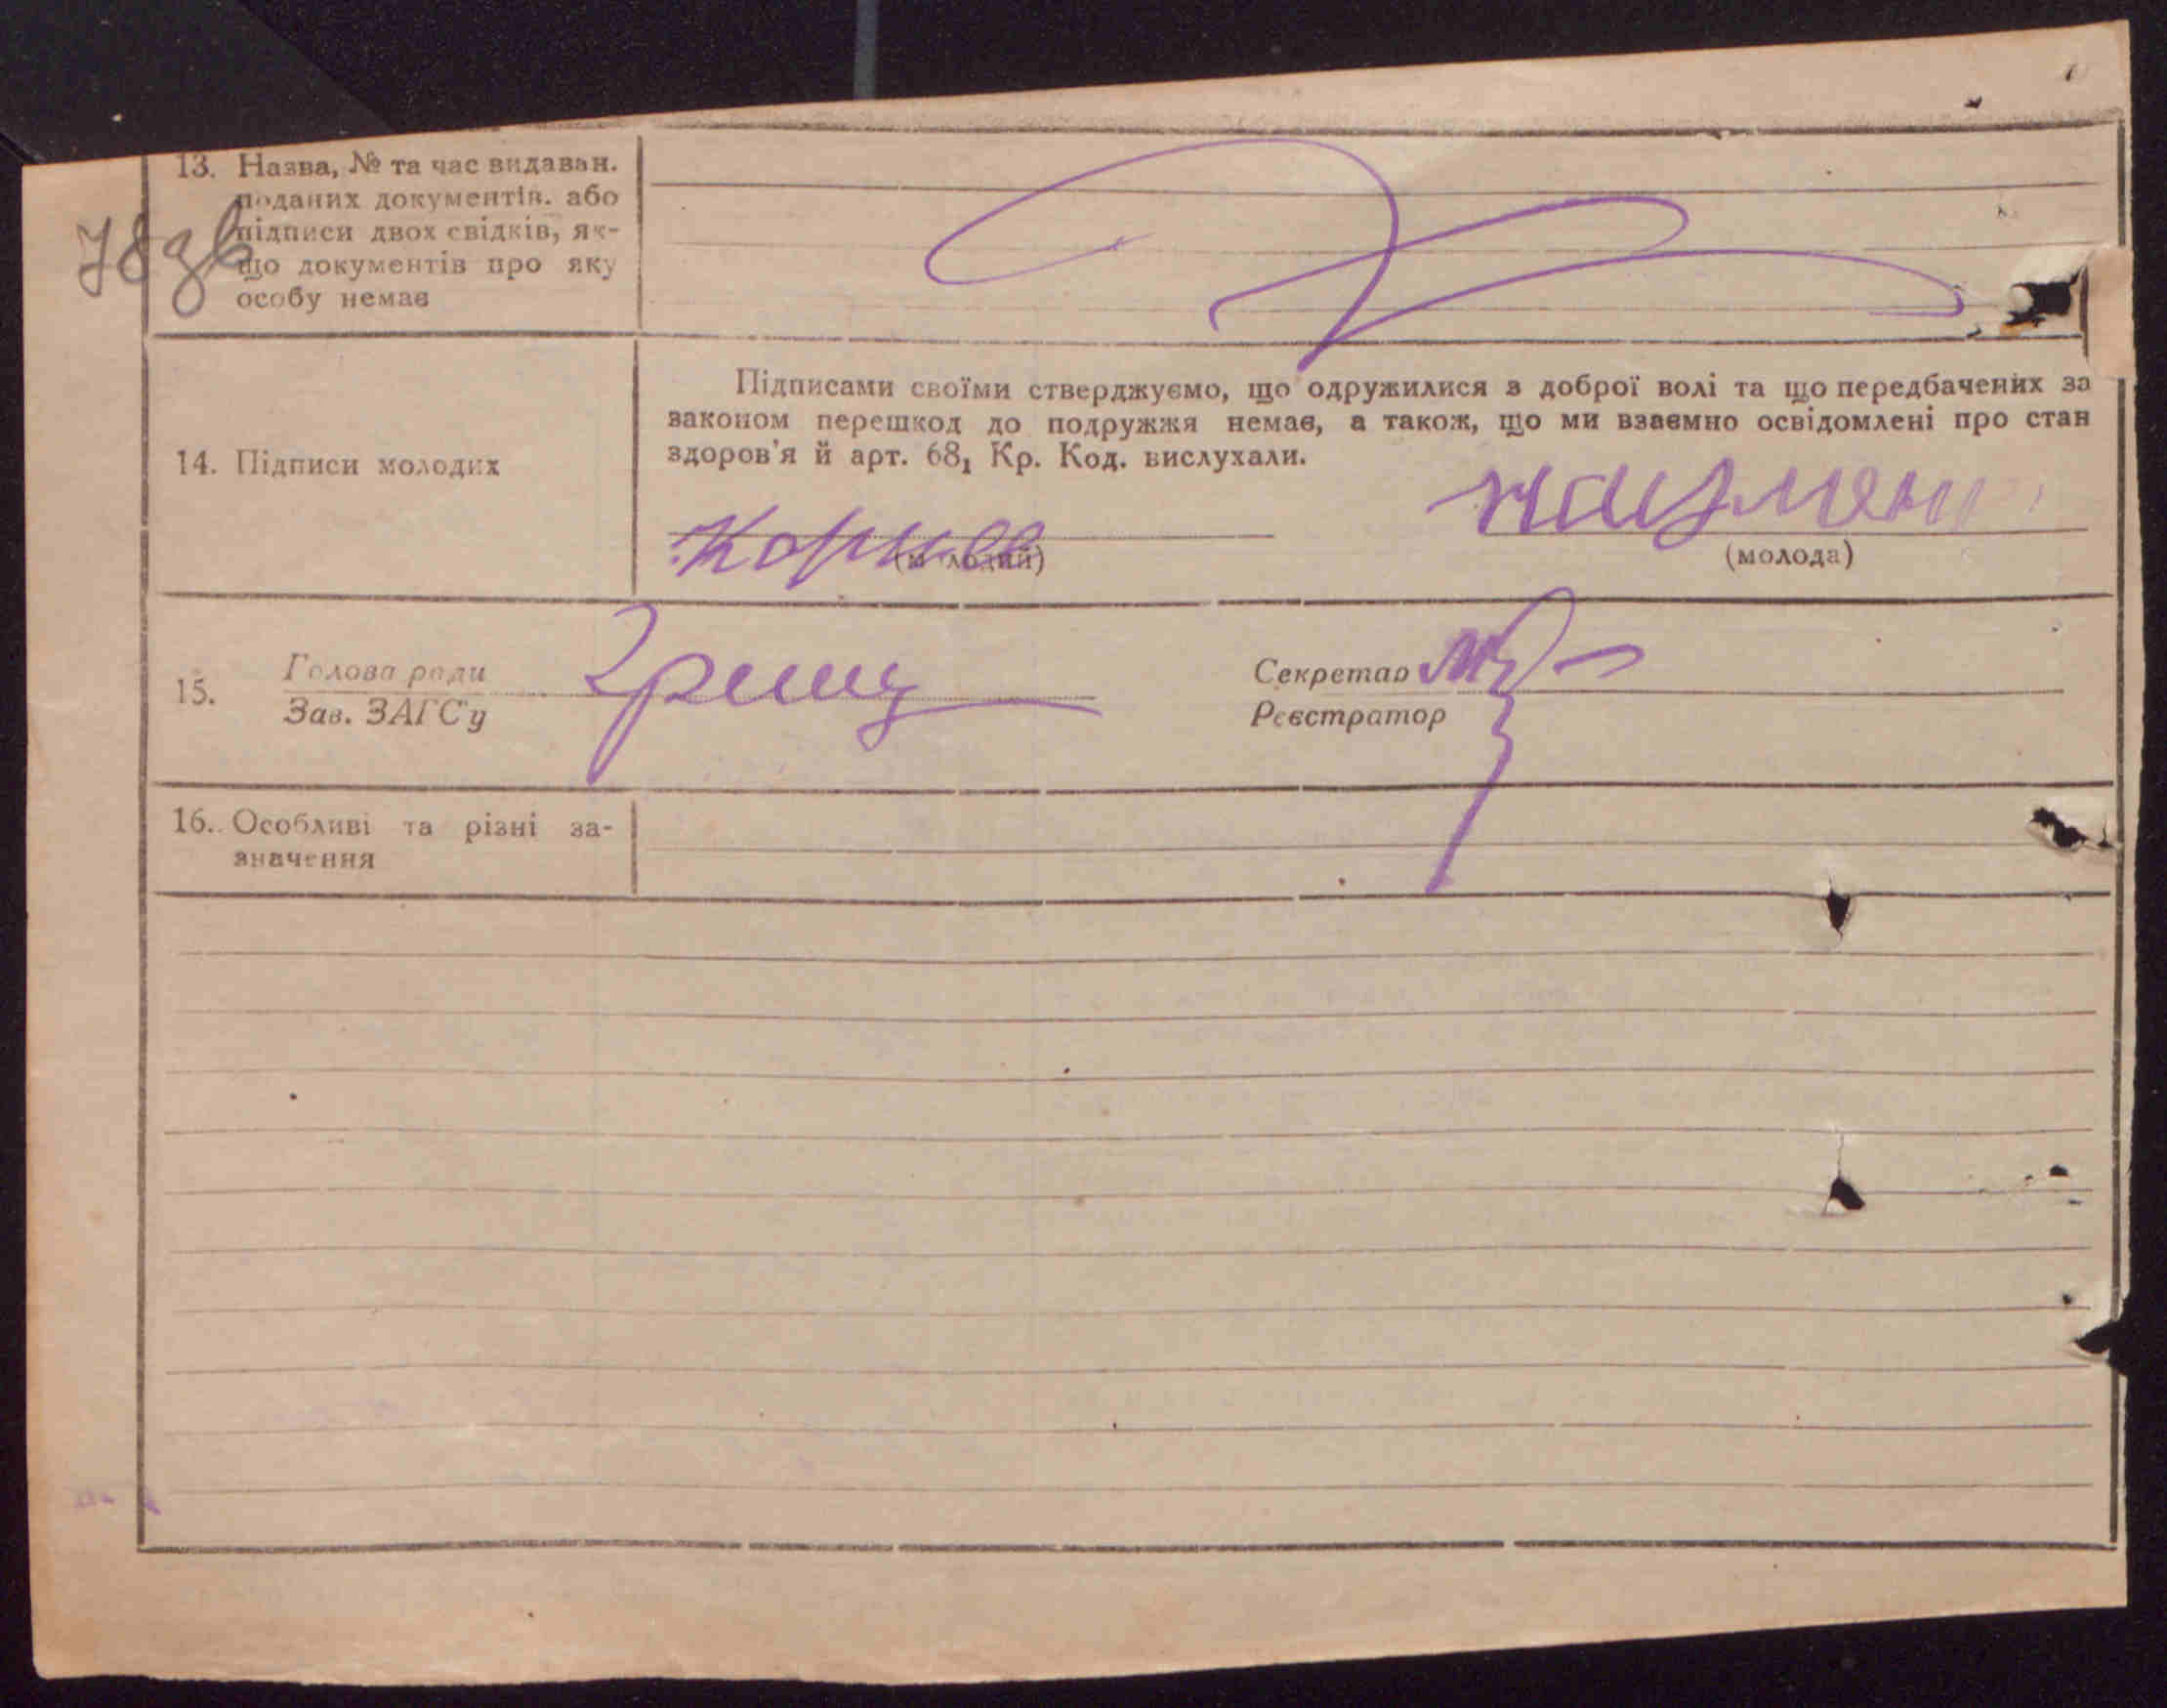 13. Назва, № та час видаван.
поданих документів. або
підписи двох свідків, як-
що документів про яку
особу немає
78 зв
Підписами своїми стверджуємо, що одружилися з доброї волі та що передбачених за
законом перешкод до подружжя немає, а також, що ми взаємно освідомлені про стан
здоров'я й арт. 68₁ Кр. Код. вислухали.
14. Підписи молодих
(молодий)
(молода)
15. Голова ради
Зав. ЗАГС'у
Секретар
Реєстратор
16. Особливі та різні за-
значення